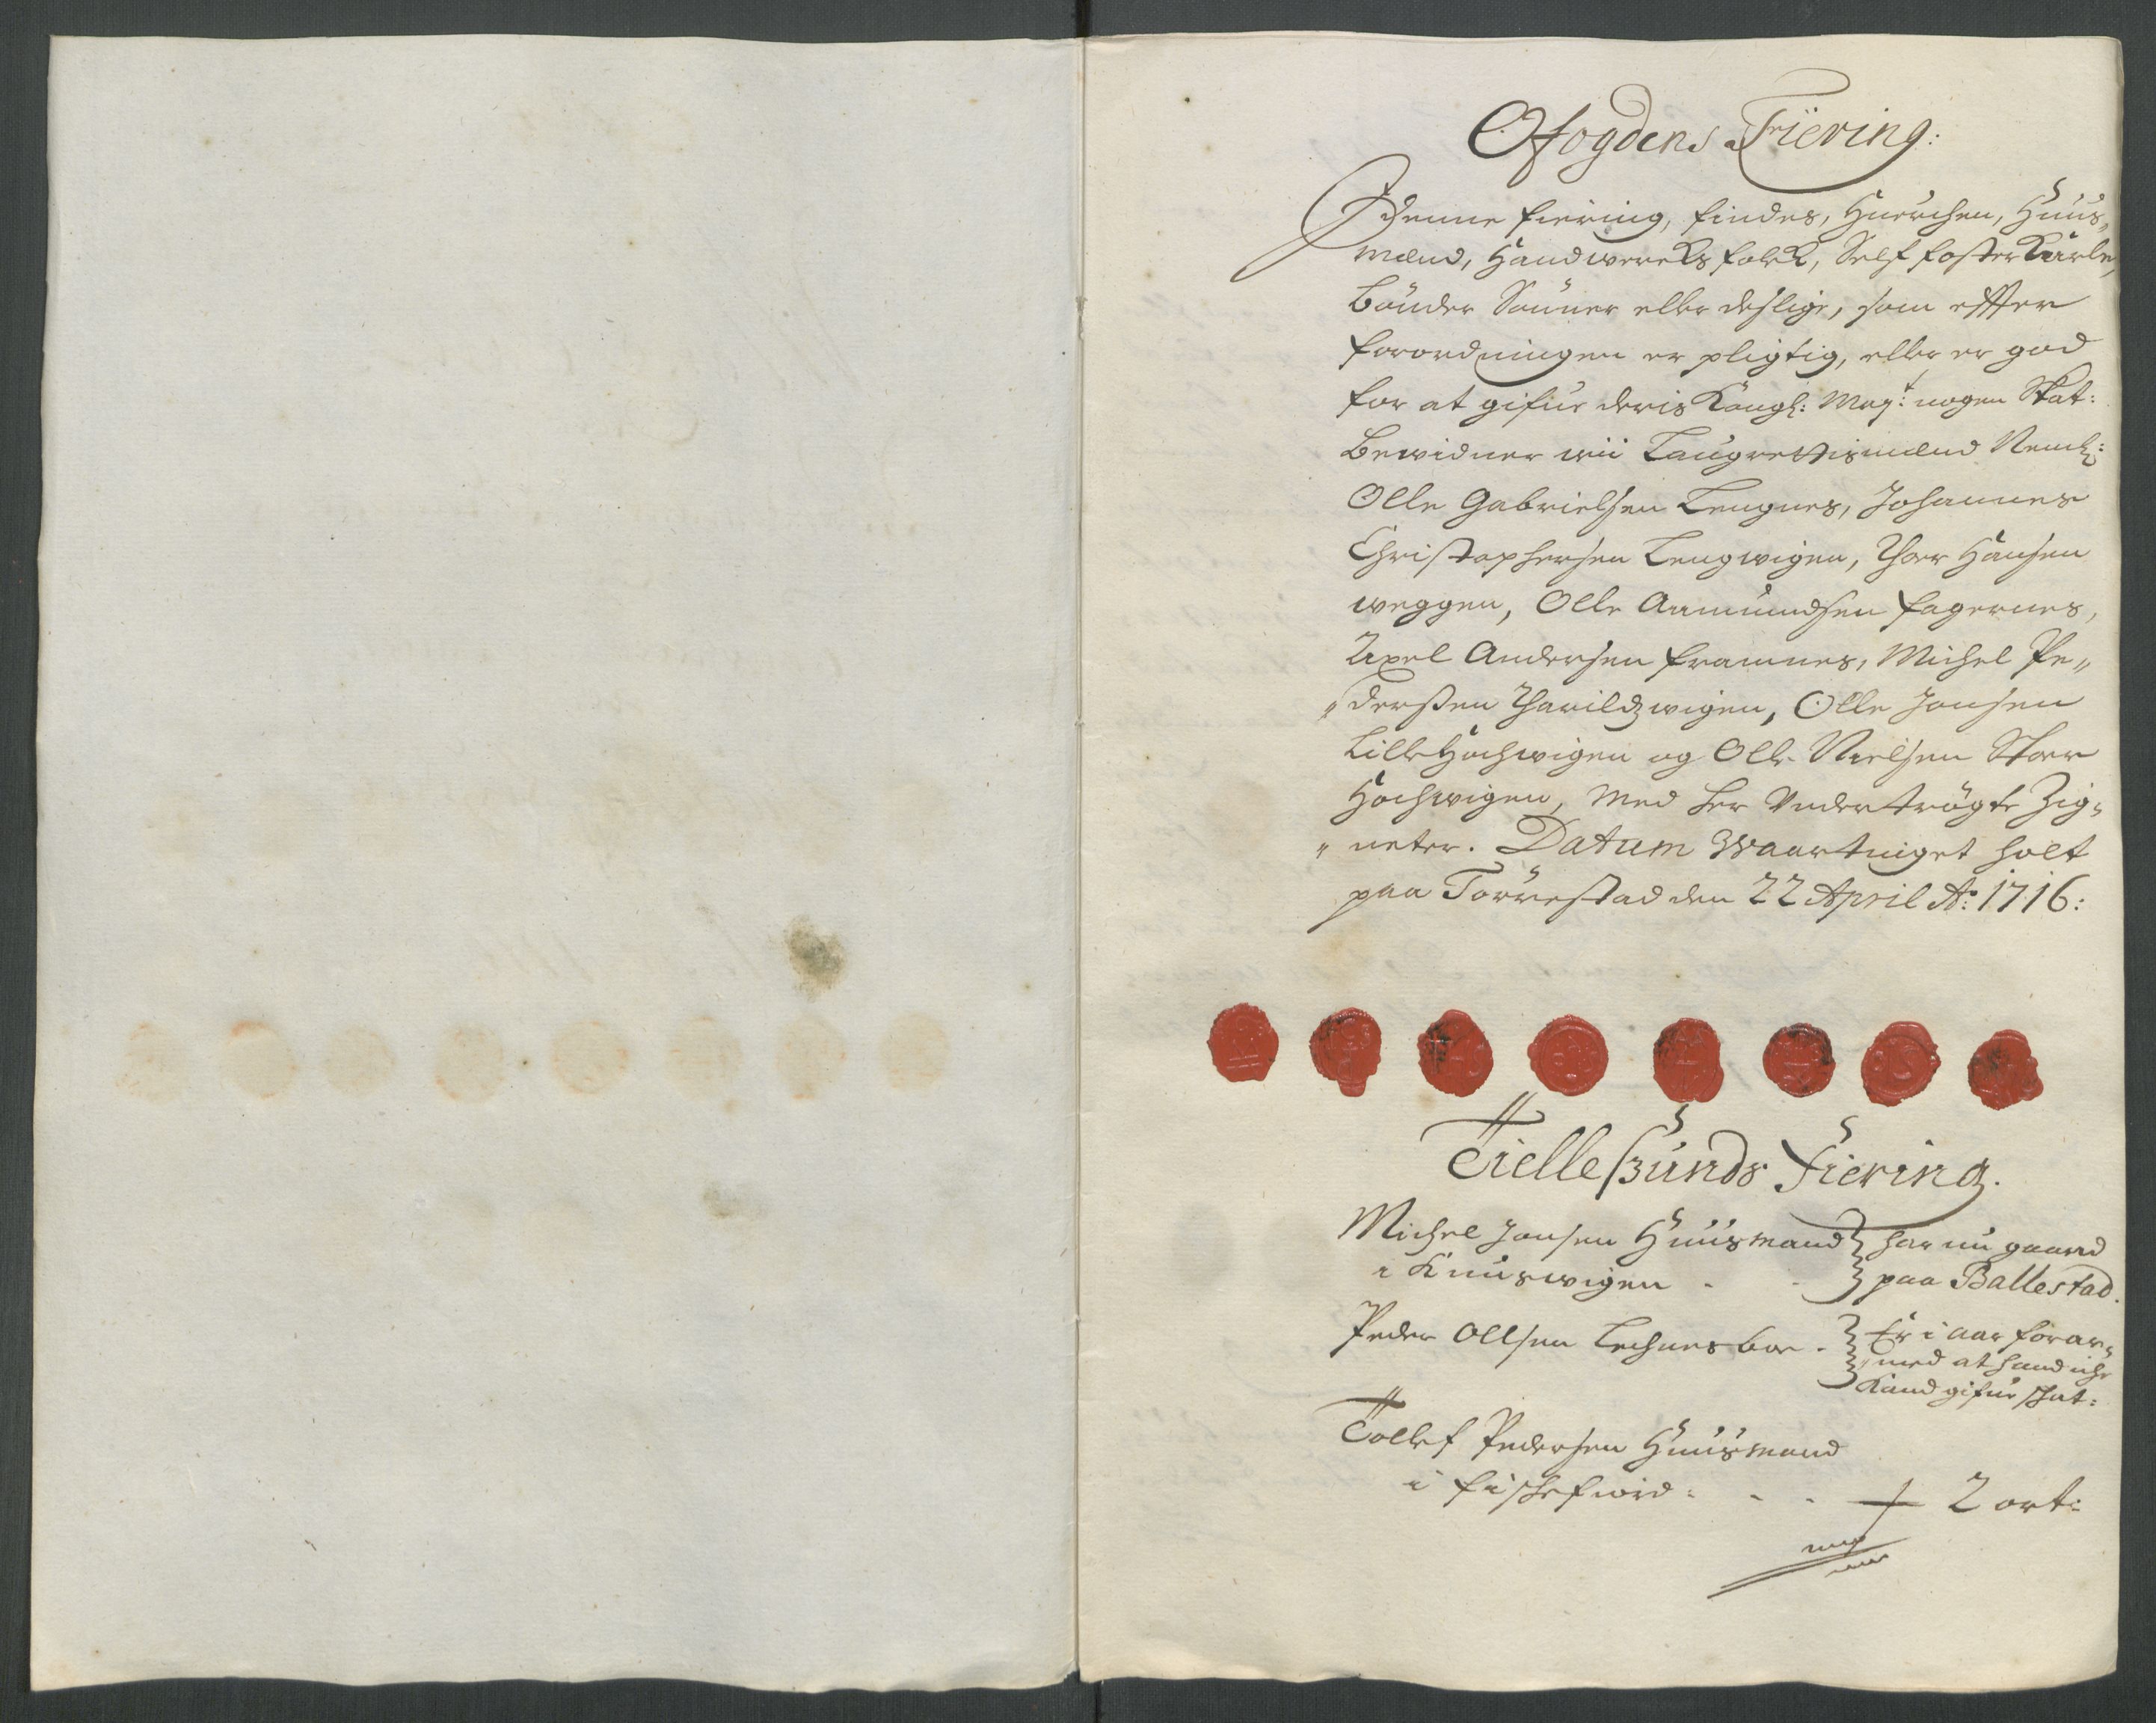 Ofogdens Fiering:
J denne fiering, findes, Huerchen, Huus„
mænd, Handwercks folck, Self foster Karle,
bönder Sönner eller deslige, som effter
forordningen er pligtig, eller er god
for at gifue deris Kongl: May:t nogen Skat:
bewidner wii Laugrettismænd Neml:
Olle Gabrielsen Lengnes, Johannes
Christophersen Lengwigen, Thor Hansen
weggen, Olle Aamundsen fagernes,
Axel Andersen framnes, Michel Pe„
„derßen Tharildzwigen, Olle Jonsen
Lille Hochwigen og Olle Nielsen Stor
Hochwigen, Med her Undertrögte Zig„
„neter. Datum Waartinget holt
paa Torrestad den 22 April Ao: 1716:
Tielleßunds Fiering.
Michel Jonsen Huusmand har nu gaard
i Knudswigen - - paa Ballestad.
Peder Ollsen Lechnes boe - Er i aar forar„
„med at hand iche
Kand gifue skat:
Tollef Pedersen Huusmand
i fiskefiord: - - 2 ort: